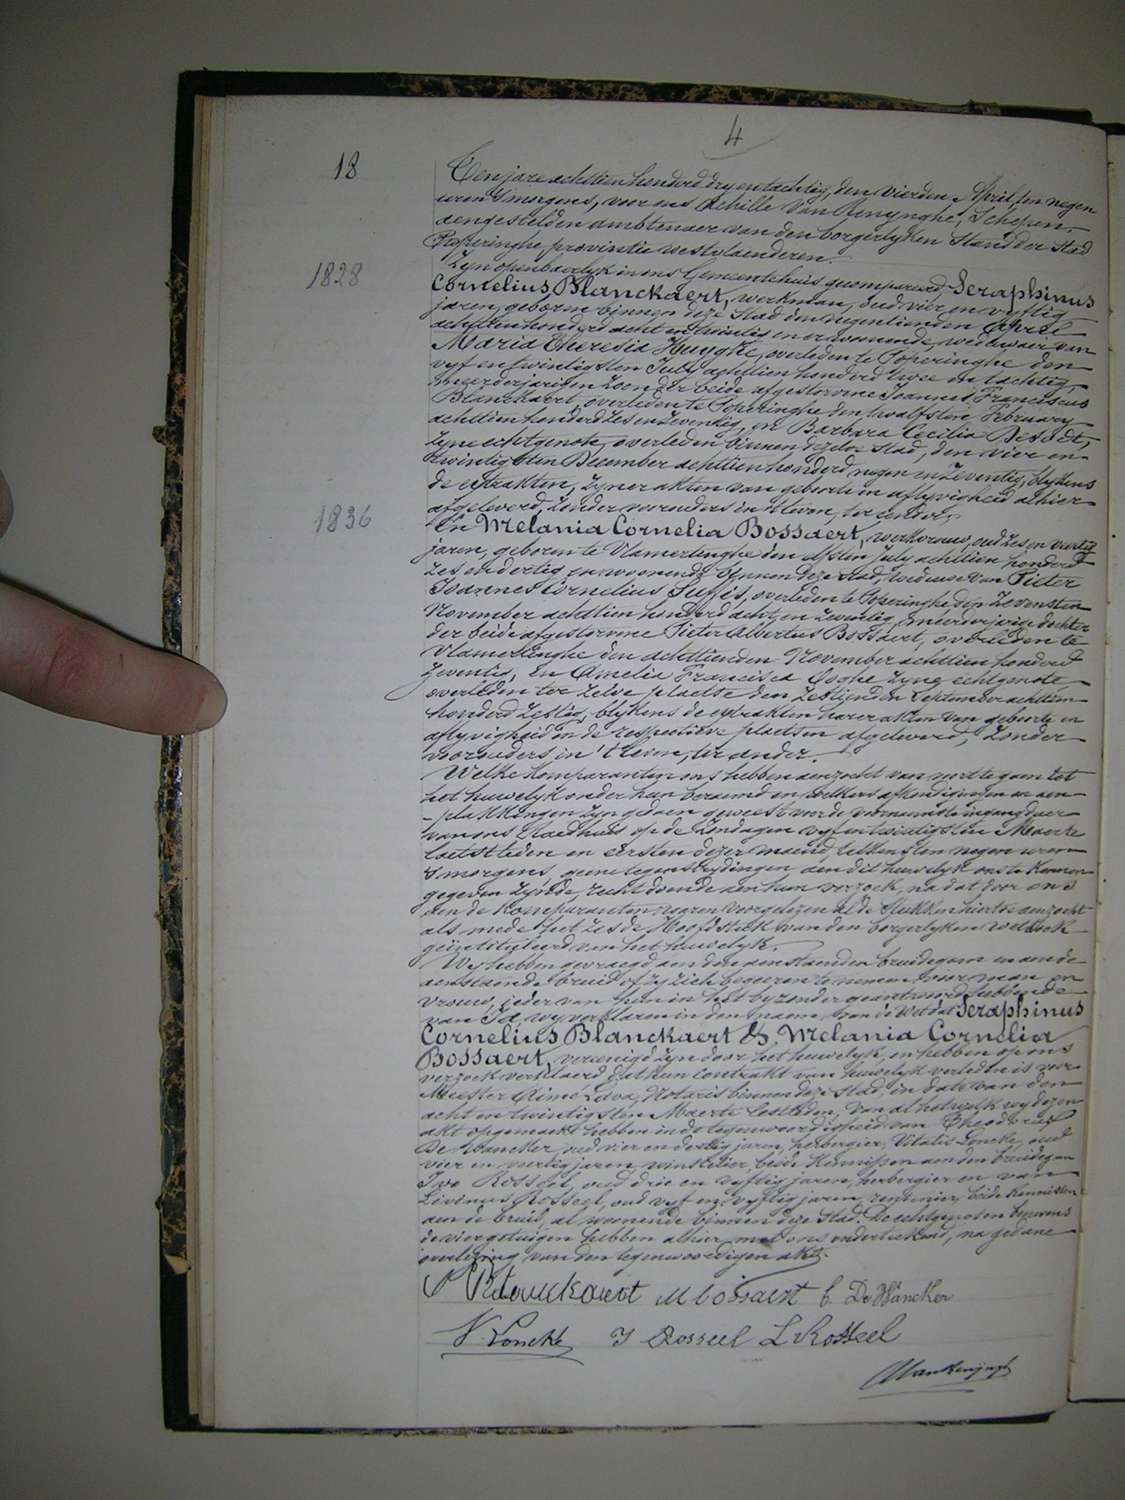 4
18
Ten jare achttien honderd dry en tachtig, den vierden April, ten negen
uren 's morgens, voor ons Achille Van Renynghe, Schepen,
aengestelden ambtenaer van den borgerlyken Stand der Stad
Poperinghe, provintie westvlaenderen.
1828
Zyn openbaerlyk in ons Gemeentehuis gecompareerd, Seraphinus
Cornelius Blanckaert, werkman, oud vier en vyftig
jaren, geboren binnen deze Stad den negentienden April
achttien honderd acht en twintig en er woonende, weduwaer van
Maria Theresia Huyghe, overleden te Poperinghe den
vyf en twintigsten July achttien honderd twee en tachtig,
meerderjarigen Zoon der beide afgestorvene Joannes Franciscus
Blanckaert, overleden te Poperinghe den twalfsten February
achttien honderd zes en zeventig, en Barbara Cecilia Desodt,
zyne echtgenote, overleden binnen dezelve Stad, den vier en
twintigsten December achttien honderd negen en zeventig, blykens
de extrakten zyner akten van geboorte en aflyvigheid alhier
afgeleverd, zonder voorouders in 't leven, ter eender.
1836
En Melania Cornelia Bossaert, werkvrouw, oud zes en veertig
jaren, geboren te Vlamertinghe den elfsten July achttien honderd
zes en dertig en woonende binnen deze stad, weduwe van Pieter
Joannes Cornelius Suffis, overleden te Poperinghe den zevensten
November achttien honderd acht en zeventig, meerderjarige dochter
der beide afgestorvene Pieter Albertus Bossaert, overleden te
Vlamertinghe den achttienden November achttien honderd
zeventig, en Amelia Francisca Coghe zyne echtgenote
overleden ter zelve plaetse den zestienden September achttien
honderd zestig, blykens de extrakten harer akten van geboorte en
aflyvigheid in de respective plaetsen afgeleverd, zonder
voorouders in 't leven, ter ander.
Welke komparanten ons hebben aenzocht van voort te gaen tot
het huwelyk onder hun beraemd en welkers afkondigingen en aen-
-plakkingen zyn gedaen geweest voor de voornaemste ingangdeur
van ons Raedhuis op de Zondagen vyf en twintigsten Maerte
laetstleden en eersten dezer maend, telkens ten negen uren
's morgens, geene tegenstrydingen aen dit huwelyk ons te kennen
gegeven zynde, recht doende aen hun verzoek, na dat door ons
aen de komparanten waren voorgelezen al de stukken hiertoe aenzocht
als mede het zesde Hoofdstuk van den borgerlyken wetboek
geintituleerd van het huwelyk.
Wy hebben gevraegd aen den aenstaenden bruidegom en aen de
aenstaende bruid of zy zich begeeren te nemen voor man en
vrouw, ieder van hun in het byzonder geantwoord hebbende
van Ja, wy verklaren in den naem van de wet dat Seraphinus
Cornelius Blanckaert & Melania Cornelia
Bossaert, vereenigd zyn door het huwelyk, en hebben op ons
verzoek verklaerd dat hun contrakt van huwelyk verleden is voor
Meester Aimé Lava, Notaris binnen deze stad, in date van den
acht en twintigsten Maerte lestleden, van al hetwelk wy dezen
akt opgemaekt hebben in de tegenwoordigheid van Theodorus
De Hancker, oud vier en dertig jaren, herbergier, Vitalis Loncke, oud
vier en veertig jaren, winkelier, beide kennissen aen den bruidegom
Ivo Rosseel, oud drie en vyftig jaren, herbergier en van
Livinus Rosseel, oud vyf en vyftig jaren, rentenier, beide kennissen
aen de bruid, al woonende binnen deze Stad. De echtgenoten benevens
de vier getuigen hebben alhier met ons onderteekend, na gedane
voorlezing van den tegenwoordigen akt.
S Blanckaert M Bossaert C. De Hancker
V. Loncke I Rosseel L Rosseel